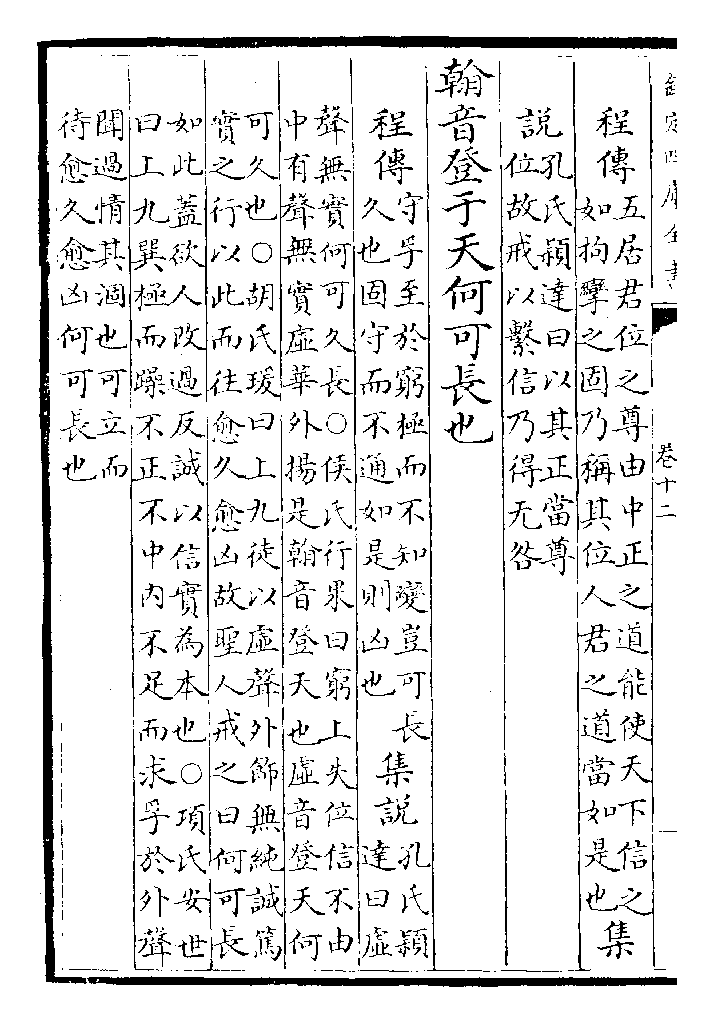 欽定四庫全書 卷十二
程傳 五居君位之尊由中正之道能使天下信之
如拘攣之固乃稱其位人君之道當如是也 集
說 孔氏穎達曰以其正當尊
位故戒以繫信乃得无咎
翰音登于天何可長也
程傳 守孚至於窮極而不知變豈可長
久也固守而不通如是則凶也 集說 孔氏穎
達曰虛
聲無實何可久長○侯氏行果曰窮上失位信不由
中有聲無實虛華外揚是翰音登天也虛音登天何
可久也○胡氏瑗曰上九徒以虛聲外飾無純誠篤
實之行以此而往愈久愈凶故聖人戒之曰何可長
如此蓋欲人改過反誠以信實為本也○項氏安世
曰上九巽極而躁不正不中內不足而求孚於外聲
聞過情其涸也可立而
待愈久愈凶何可長也